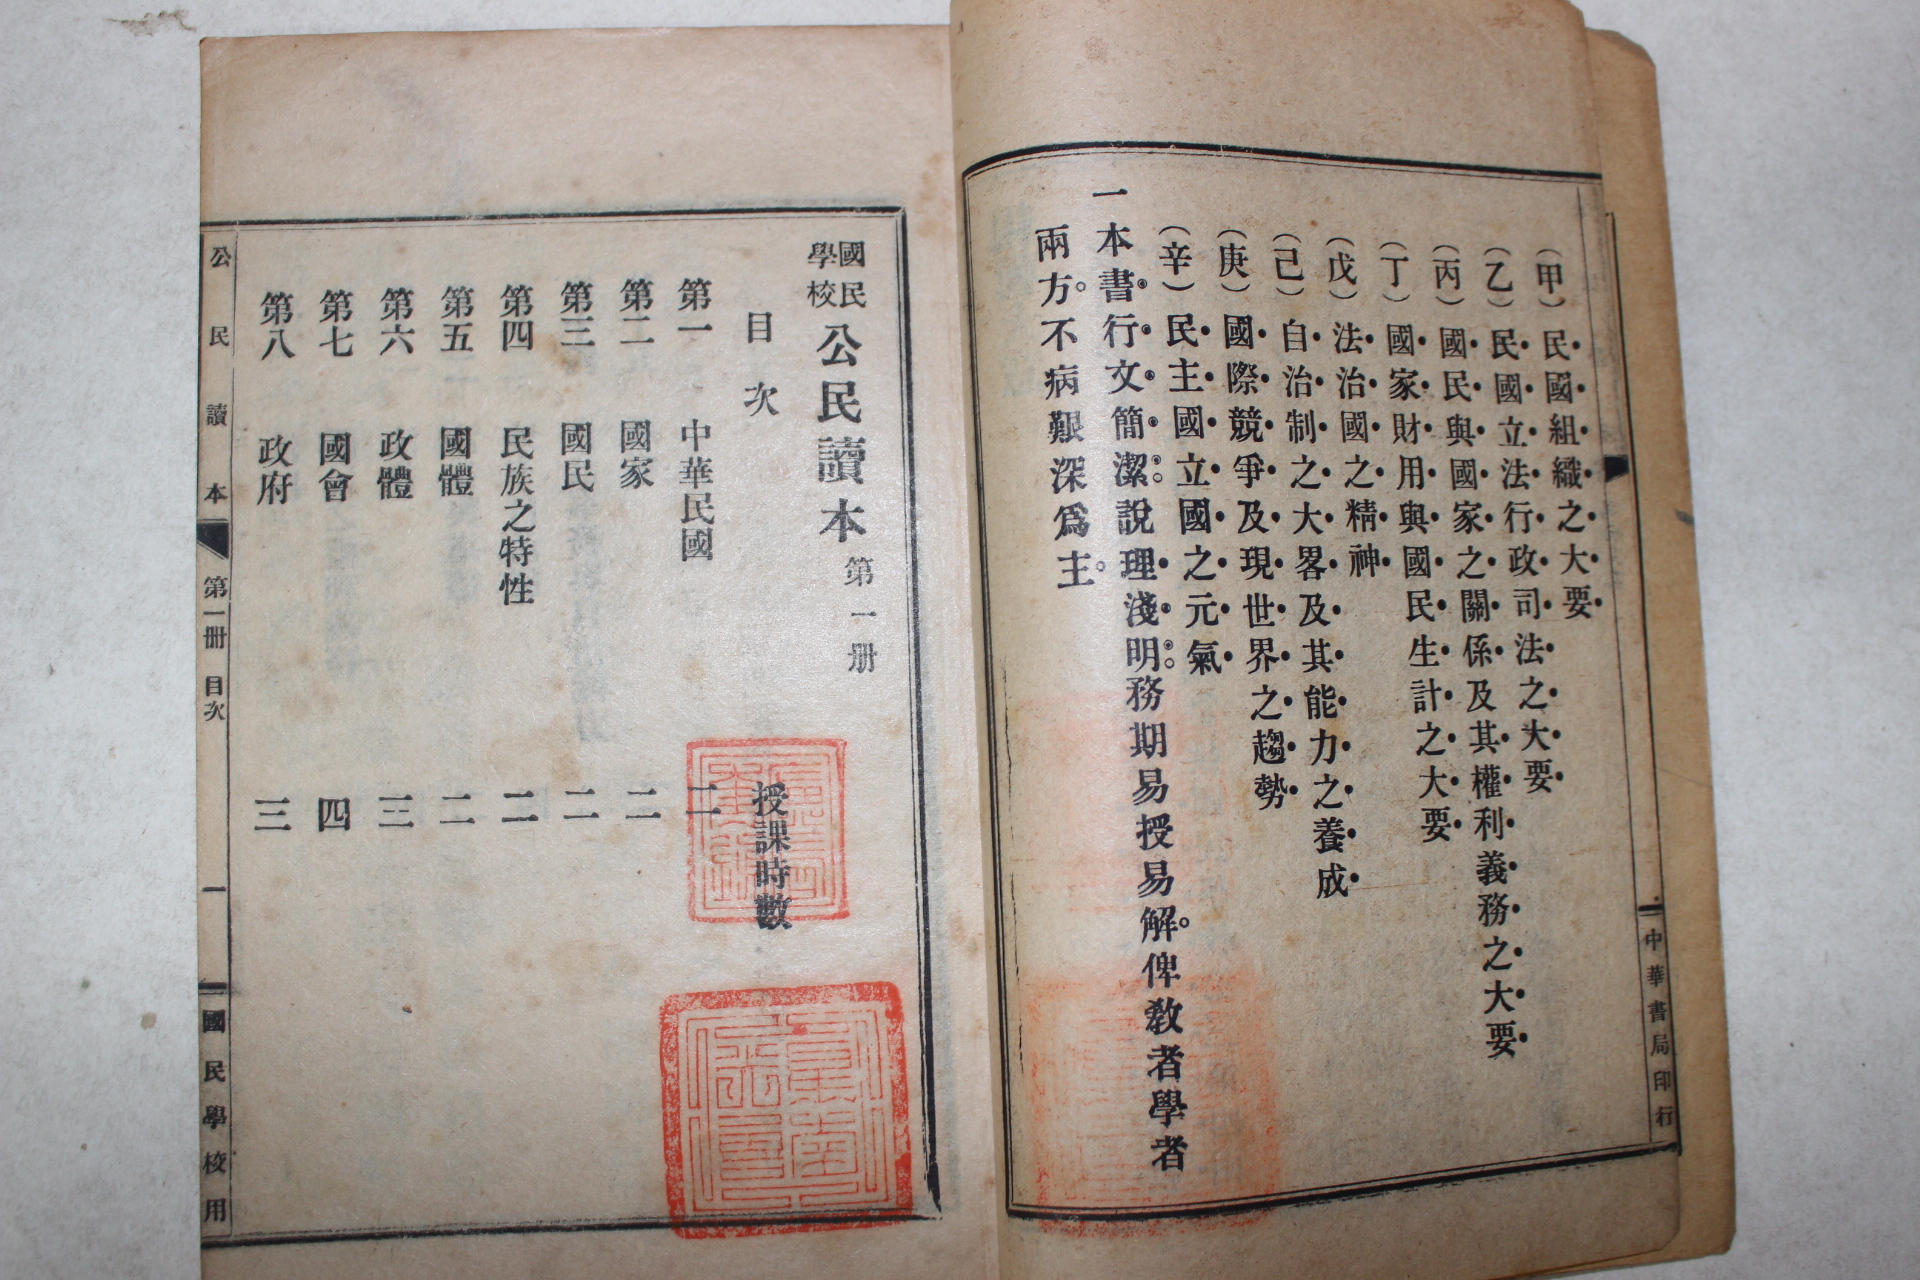 （甲）民國組織之大要
（乙）民國立法行政司法之大要
（丙）國民與國家之關係及其權利義務之大要
（丁）國家財用與國民生計之大要
（戊）法治國之精神
（己）自治制之大畧及其能力之養成
（庚）國際競爭及現世界之趨勢
（辛）民主國立國之元氣
一本書行文簡潔。說理淺明。務期易授易解。俾教者學者
兩方。不病艱深爲主。
中華書局印行
國民學校 公民讀本 第一册
目次 授課時數
第一 中華民國 二
第二 國家 二
第三 國民 二
第四 民族之特性 二
第五 國體 二
第六 政體 三
第七 國會 四
第八 政府 三
公民讀本 第一册 目次 一 國民學校用